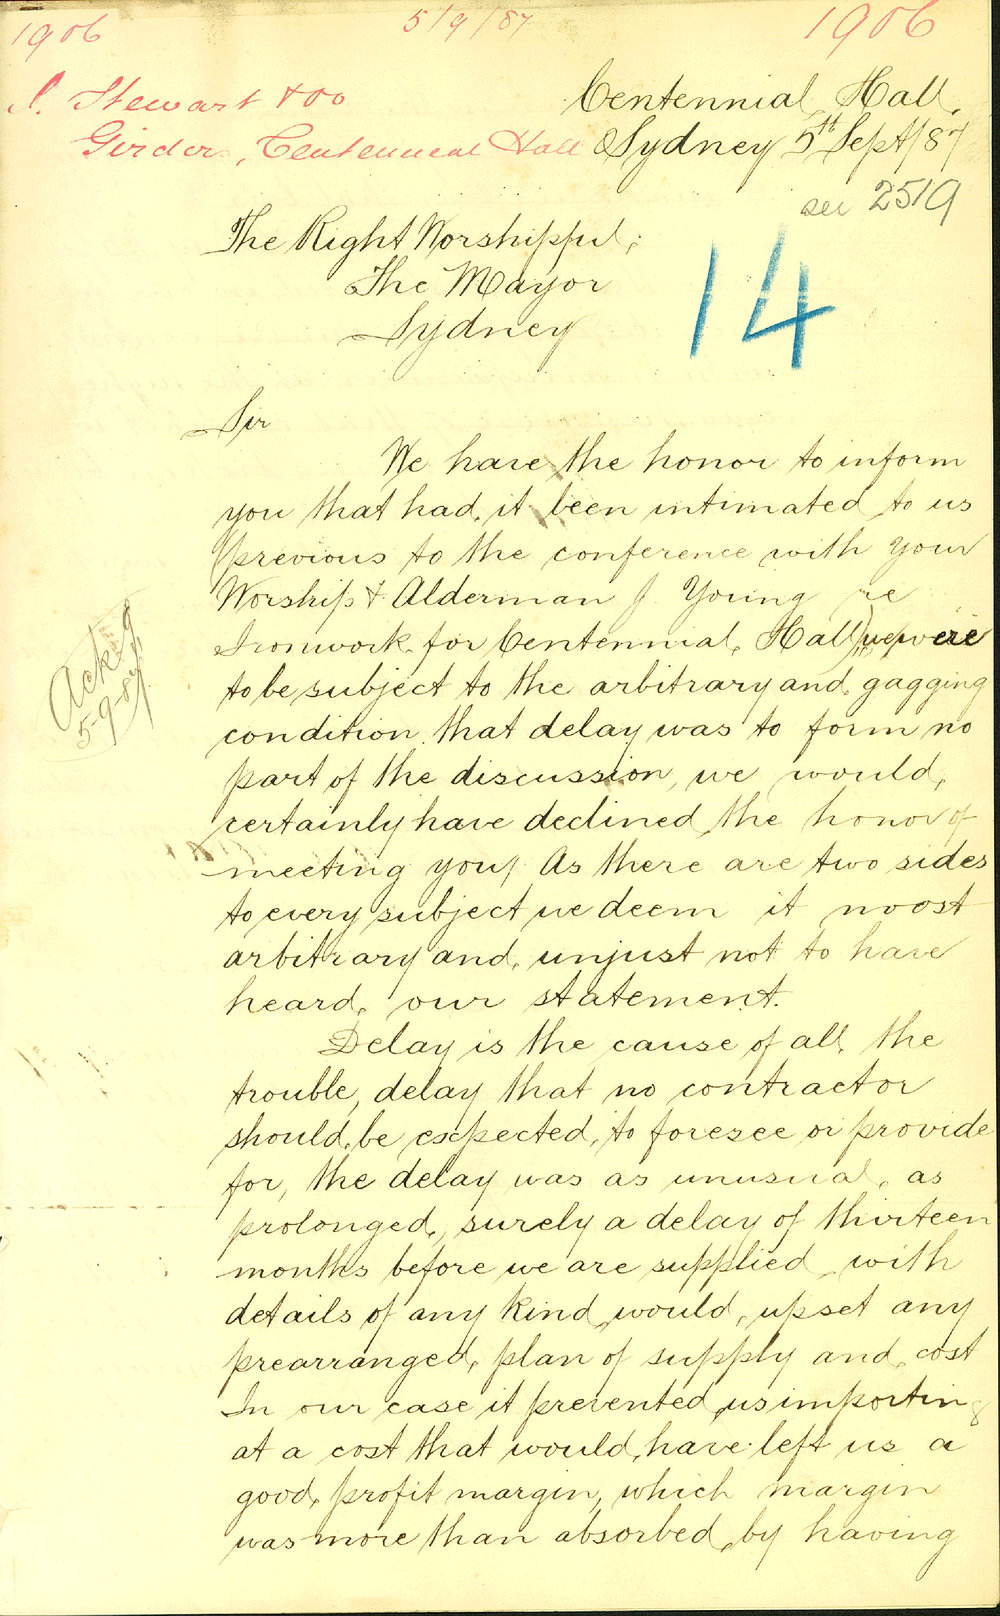 1906
5/9/87
1906
J. Stewart & Co
Girders, Centennial Hall
Centennial Hall,
Sydney 5th Sept/87
see 2519
14
The Right Worshipful,
The Mayor
Sydney
Sir
We have the honor to inform
you that had it been intimated to us
previous to the conference with your
Worship & Alderman J. Young re
Ironwork for Centennial Hall) we were
to be subject to the arbitrary and gagging
condition that delay was to form no
part of the discussion, we would
certainly have declined the honor of
meeting you, As there are two sides
to every subject we deem it most
arbitrary and unjust not to have
heard our statement.
Delay is the cause of all the
trouble, delay that no contractor
should be expected to foresee or provide
for, the delay was as unusual as
prolonged, surely a delay of thirteen
months before we are supplied with
details of any kind would upset any
prearranged plan of supply and cost
In our case it prevented us importing
at a cost that would have left us a
good profit margin, which margin
was more than absorbed by having
Ackng
5-9-87